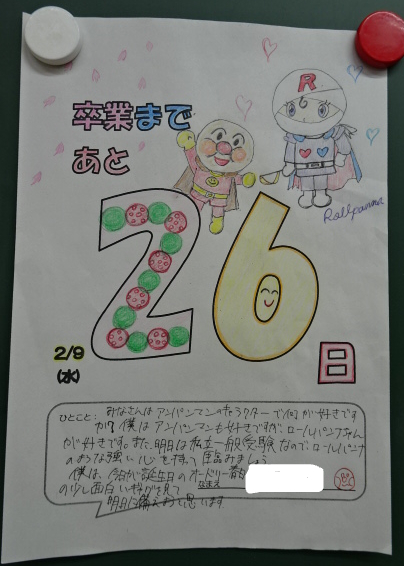 卒業まで
あと
R
Rollpanna
26
日
2/9
(水)
ひとこと: みなさんはアンパンマンのキャラクターで何が好きです
か? 僕はアンパンマンも好きですが、ロールパンナちゃん
が好きです。また、明日は私立一般受験なので、ロールパンナ
のような強い心を持って臨みましょう
僕は、今日が誕生日のオードリー春日
なまえ
の少し面白い
明日に備えようと思います